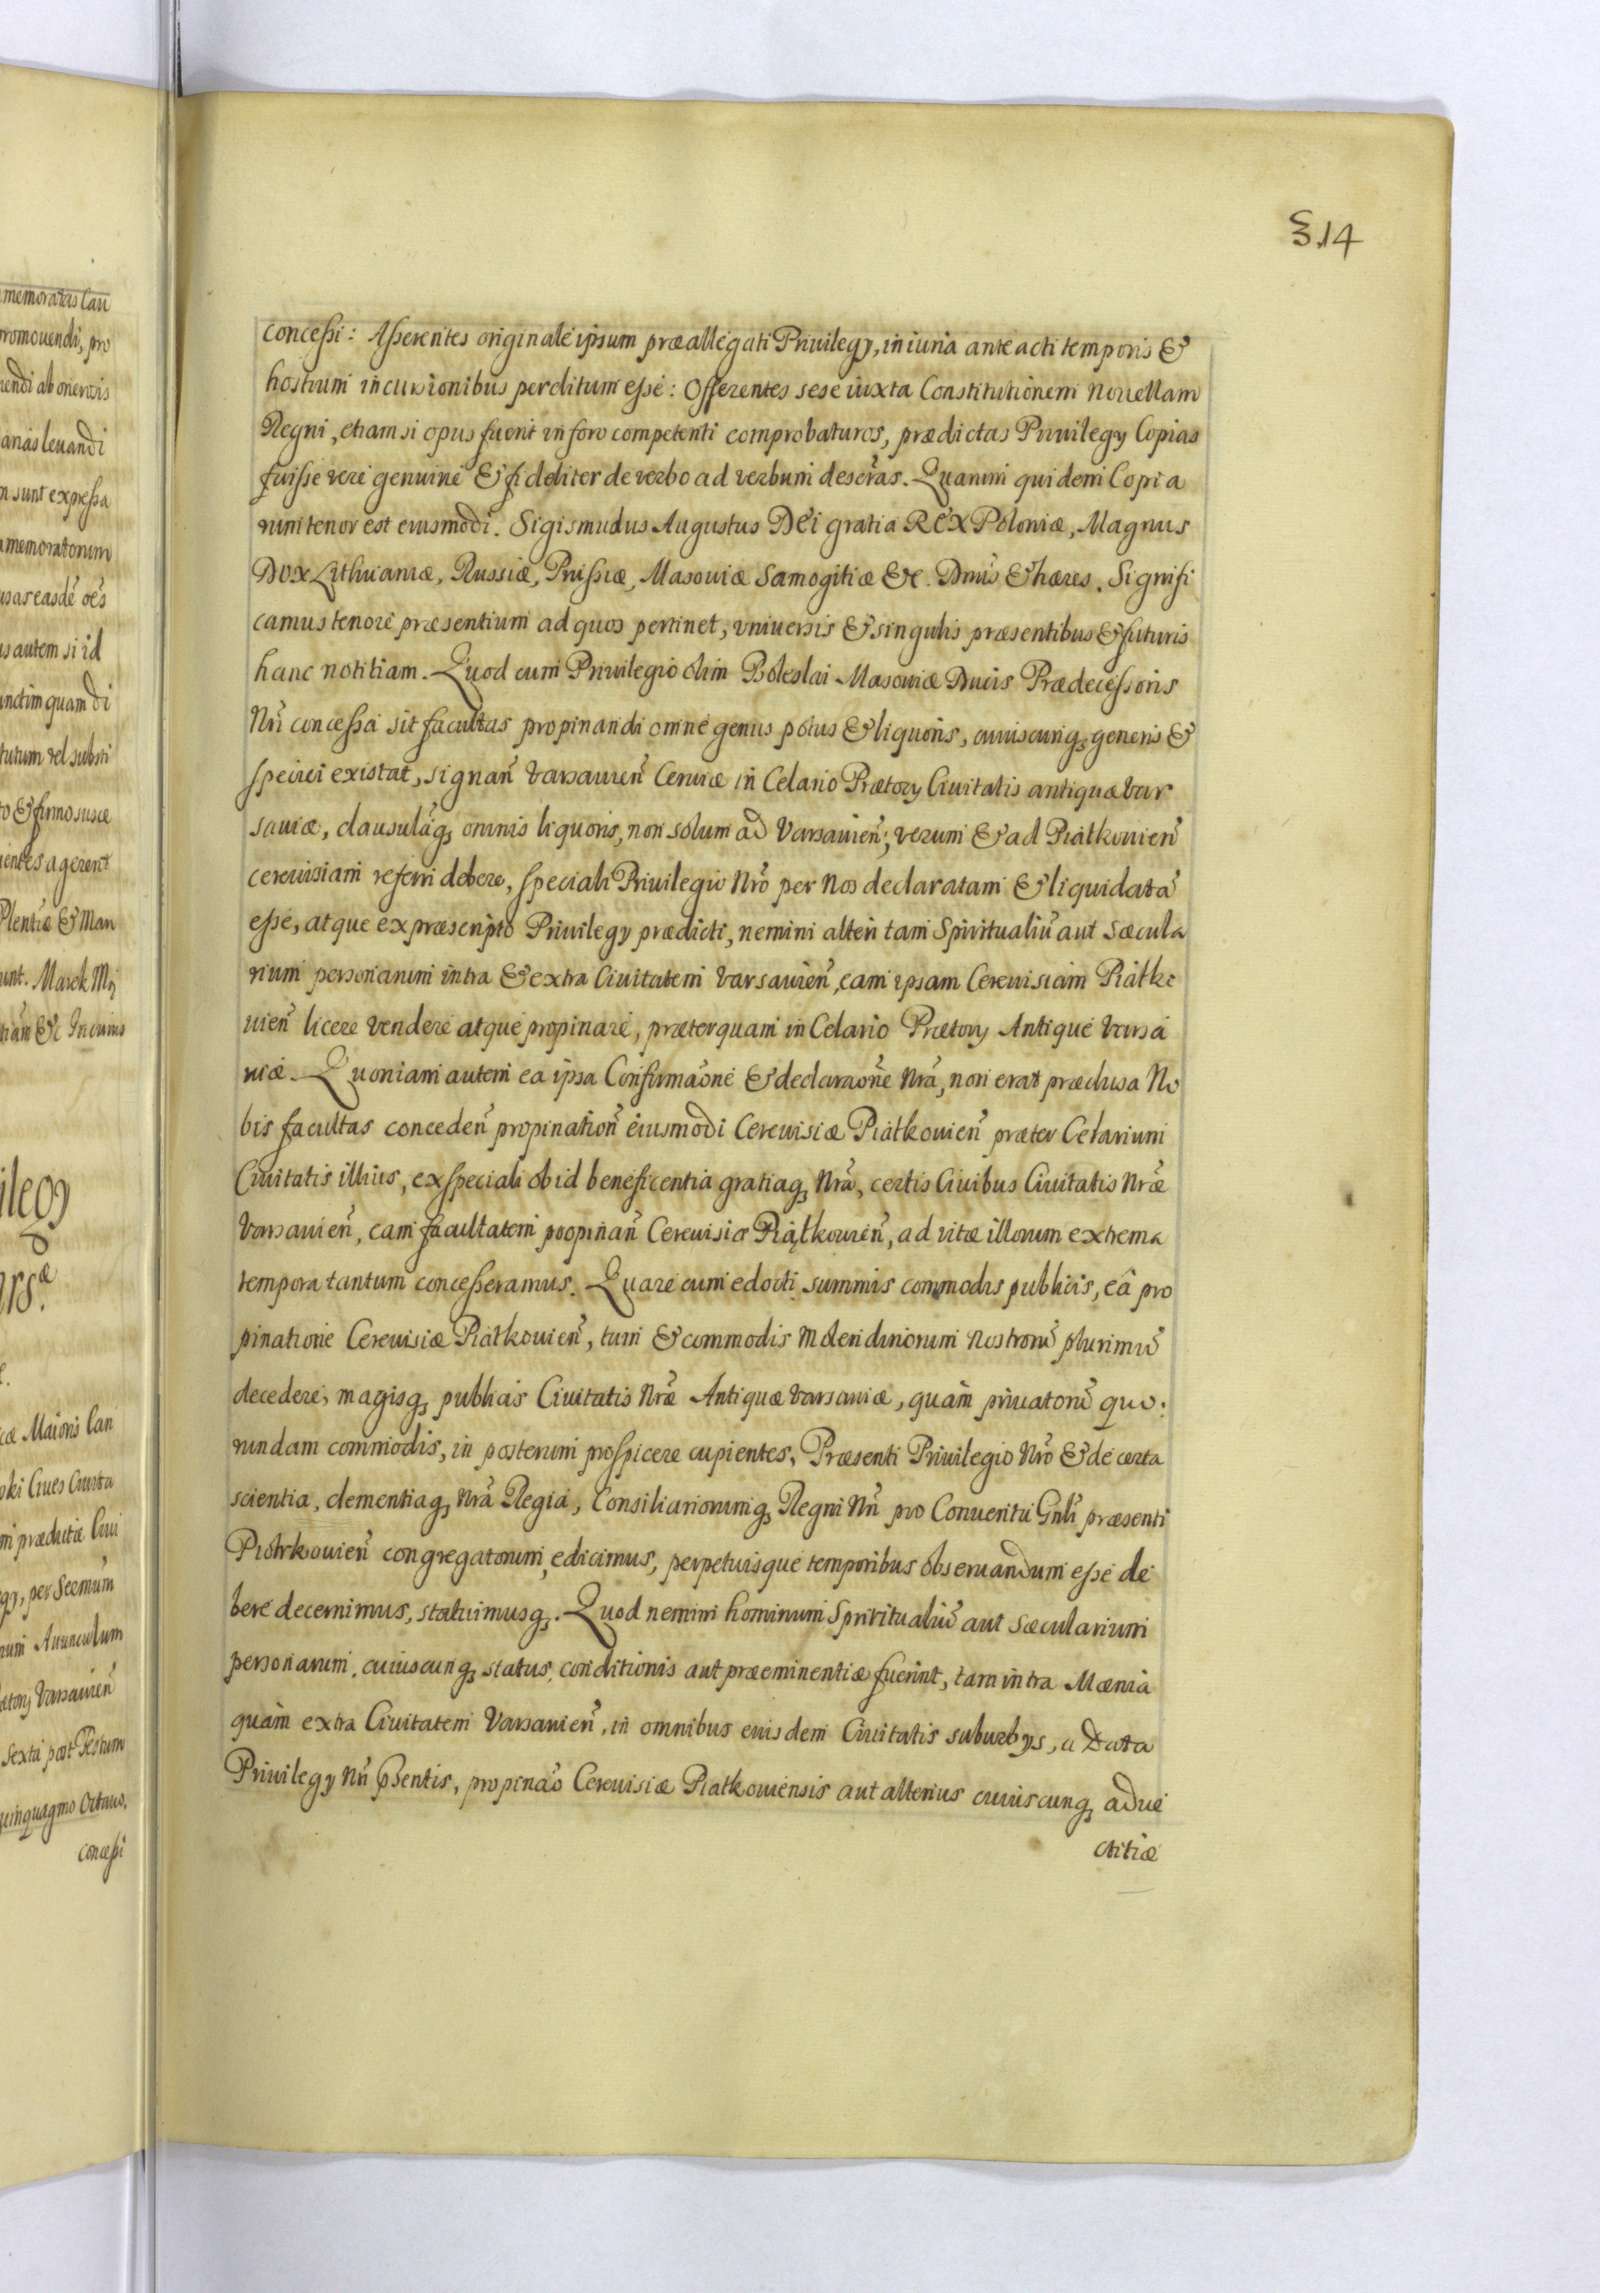 memoratas Cau
promouendi, pro
uendi ab onerosis
anas leuandi
n sunt expressa
memoratorum
us autem si id
unctim quam di
tutum vel substi
to & firmo susce
ientes agerent
Plentiæ & Man
unt. Marek Mp
ilegy
arsæ
cæ Maioris Can
oki Ciues Ciuita
m prædictæ Ciui
num Auunculum
ætorÿ Varsauien̄
sexta post Festum
uinquagmo Octauo.
concessi
314
concessi: Asserentes originale ipsum præallegati Priuilegÿ, iniuria ante acti temporis &
hostium incursionibus perditum esse: Offerentes sese iuxta Constitutionem nouellam
Regni, etiam si opus fuerit in foro competenti comprobaturos, prædictas Priuilegÿ Copias
fuisse vere genuine & fideliter de verbo ad verbum descr̄as. Quarum quidem Copia
rum tenor est eiusmodi. Sigismudus Augustus Dei gratia REX Poloniæ, Magnus
Dux Lithuaniæ, Russiæ, Prussiæ, Masouiæ Samogitiæ &c. Dnūs & hæres. Signifi
camus tenore præsentium ad quos pertinet, vniuersis & singulis præsentibus & futuris
hanc notitiam. Quod cum Priuilegio olim Boleslai Masouiæ Ducis Prædecessoris
Nrī concessa sit facultas propinandi omne genus potus & liquoris, cuiuscunq; generis &
speciei existat, signan̄ Varsauien̄ Ceruiæ in Celario Prætorÿ Ciuitatis antiquæ Var
sauiæ, clausulāq; omnis liquoris, non solum ad Varsauien̄; verum & ad Piątkouien̄
cereuisiam referri debere, speciali Priuilegio Nrō per Nos declaratam & liquidatā
esse, atque ex præscripto Priuilegÿ prædicti, nemini alteri tam Spiritualiū aut sæcula
rium personarum intra & extra Ciuitatem Varsauien̄, eam ipsam Cereuisiam Piątko
uien̄ licere vendere atque propinare, præterquam in Celario Prætorÿ Antique Varsa
uiæ. Quoniam autem ea ipsa Confirmaōne & declaraōne Nrā, non erat præclusa No
bis facultas conceden̄ propination̄ eiusmodi Cereuisiæ Piątkouien̄ præter Celarium
Ciuitatis illius, ex speciali ob id beneficentia gratiaq; Nrā, certis Ciuibus Ciuitatis Nrǣ
Varsauien̄, eam facultatem propinan̄ Cereuisiæ Piątkouien̄, ad vitæ illorum extrema
tempora tantum concesseramus. Quare cum edocti summis commodis publicis, eâ pro
pinatione Cereuisiæ Piątkouien̄, tum & commodis Molendinorum Nostrorū plurimū
decedere, magisq; publicis Ciuitatis Nrǣ Antiquæ Varsauiæ, quàm priuatorū quo:
rundam commodis, in posterum prospicere cupientes, Præsenti Priuilegio Nrō & de certa
scientia, clementiaq; Nrā Regia, Consiliariorumq; Regni Nrī pro Conuentu Gnlī præsenti
Piotrkouien̄ congregatorum, edicimus, perpetuisque temporibus obseruandum esse de
bere decernimus, statuimusq;. Quod nemini hominum Spiritualiū aut sæcularium
personarum, cuiuscunq; status, conditionis aut præeminentiæ fuerint, tam intra Mænia
quàm extra Ciuitatem Varsauien̄, in omnibus eiusdem Ciuitatis suburbÿs, a Data
Priuilegÿ Nrī p̄sentis, propinaō Cereuisiæ Piatkouiensis aut alterius cuiuscunq; adue
ctitiæ